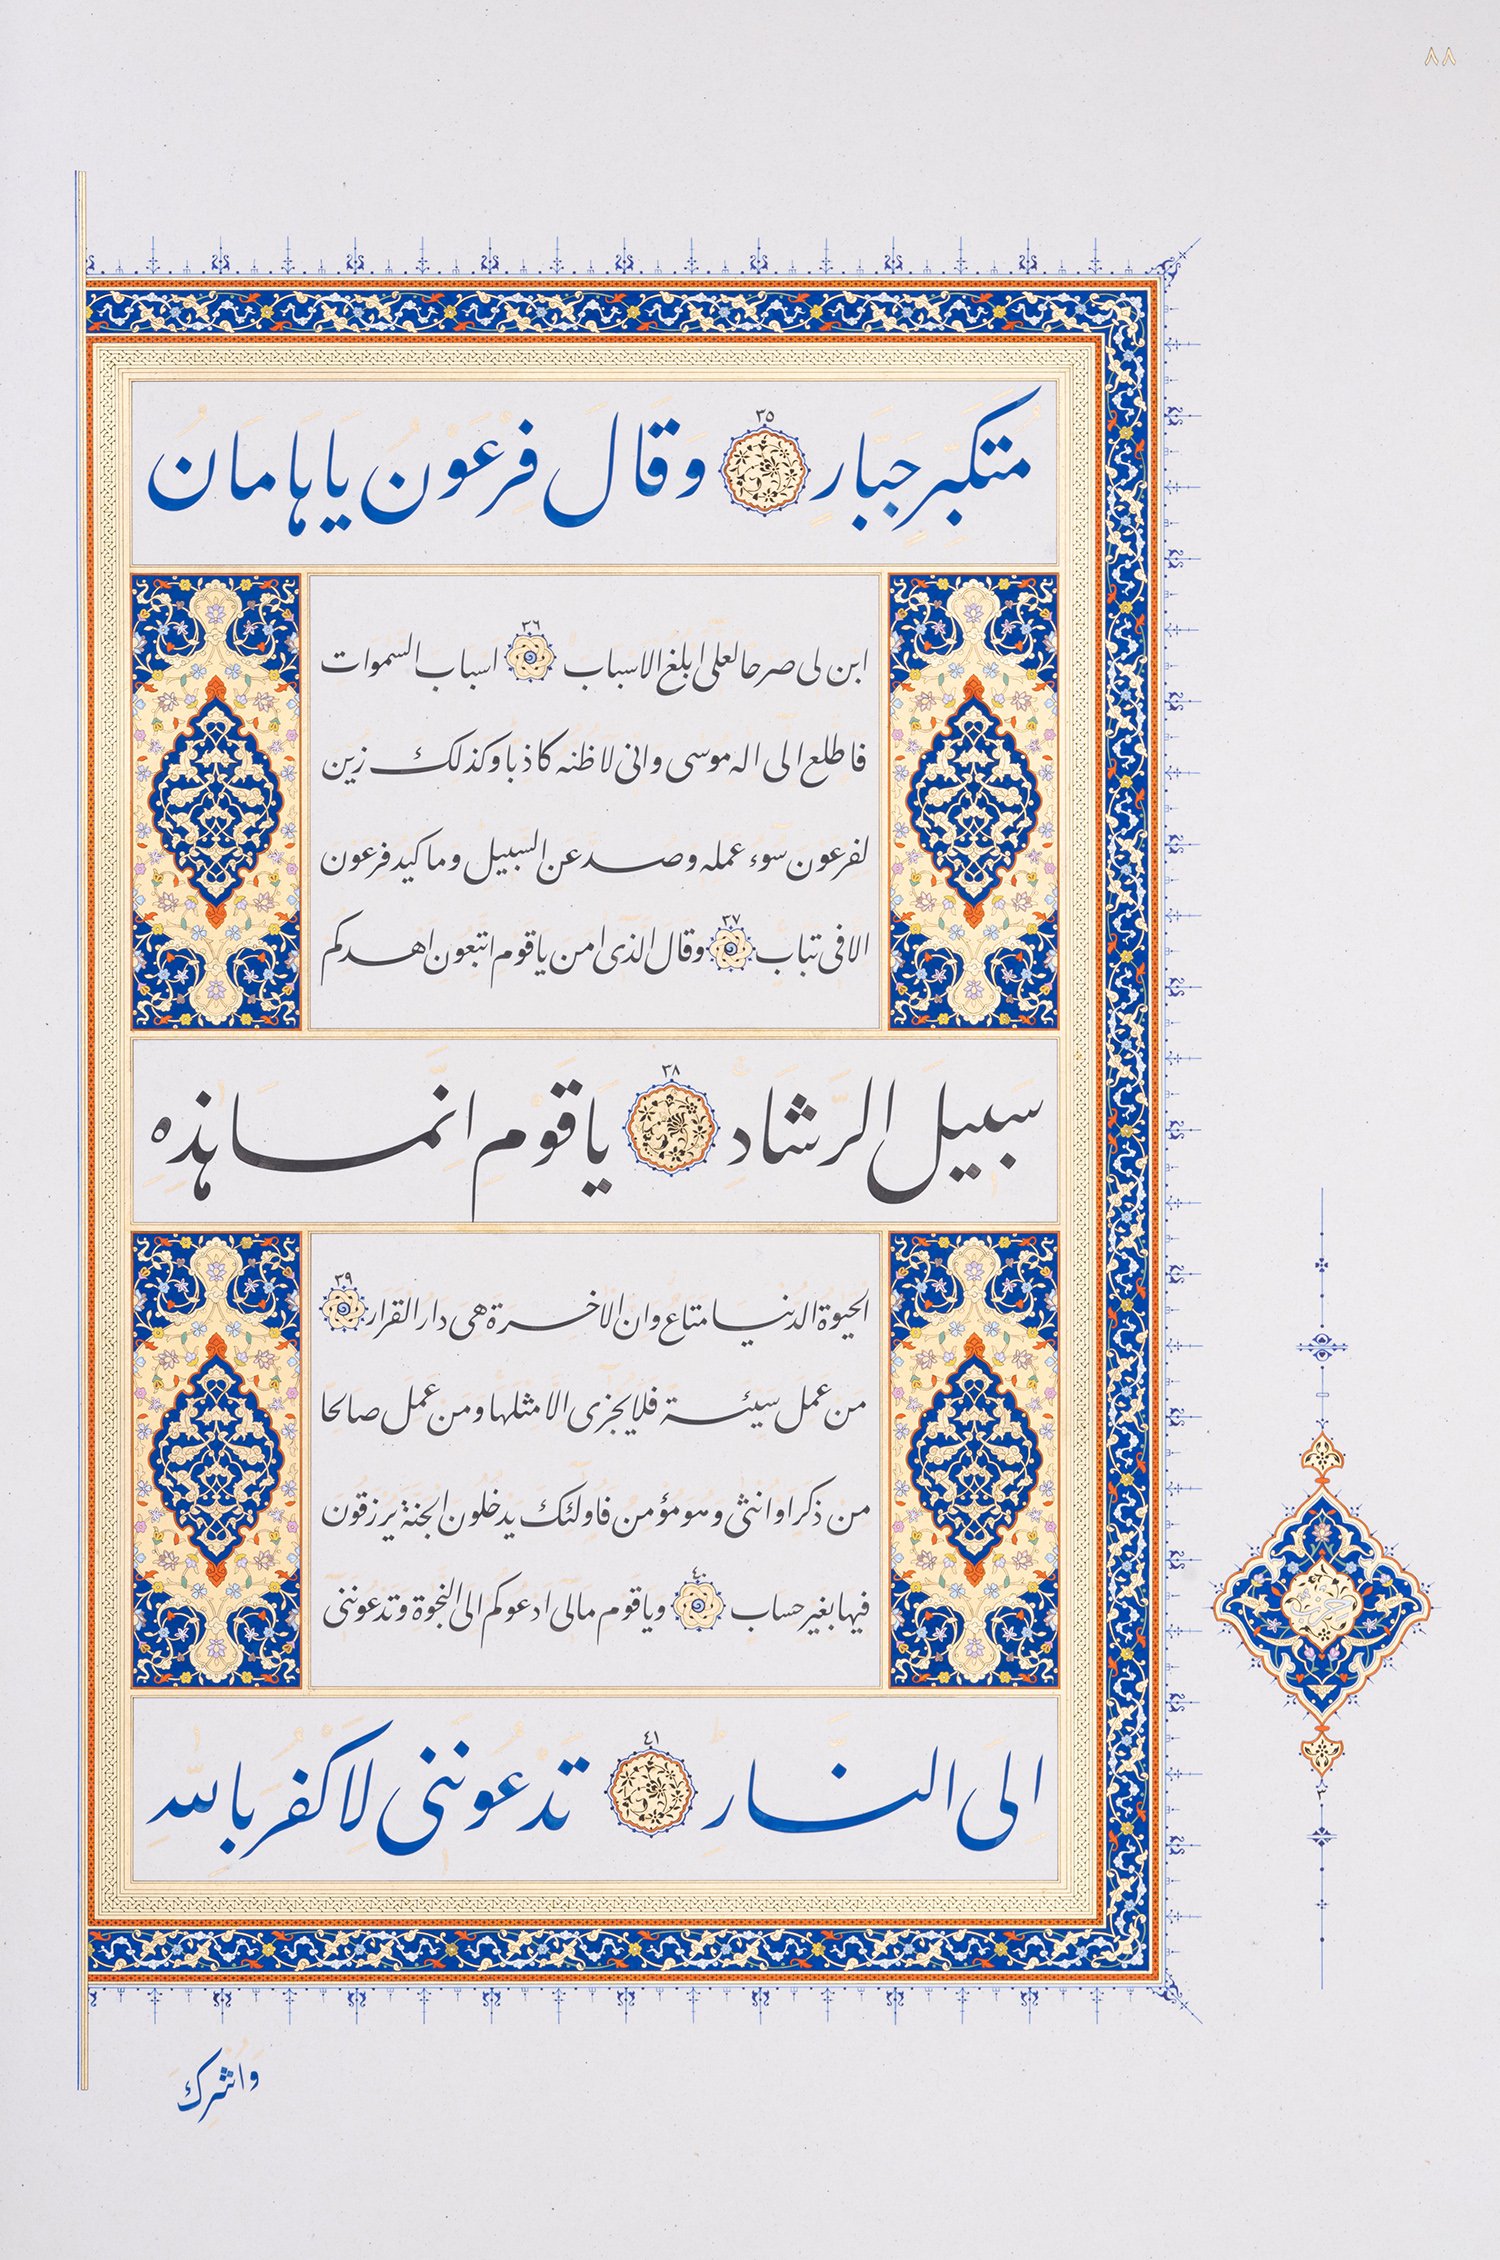 ٨٨
متكبر جبار ٣٥ وقال فرعون ياهامان
ابن لى صرحا لعلى ابلغ الاسباب ٣٦ اسباب السموات
فاطلع الى اله موسى وانى لاظنه كاذبا وكذلك زين
لفرعون سوء عمله وصد عن السبيل وما كيد فرعون
الا فى تباب ٣٧ وقال الذى امن ياقوم اتبعون اهدكم
سبيل الرشاد ٣٨ ياقوم انما هذه
الحيوة الدنيا متاع وان الاخرة هى دار القرار ٣٩
من عمل سيئة فلا يجزى الا مثلها ومن عمل صالحا
من ذكر او انثى وهو مؤمن فاولئك يدخلون الجنة يرزقون
فيها بغير حساب ٤٠ وياقوم مالى ادعوكم الى النجوة وتدعوننى
الى النار ٤١ تدعوننى لاكفر بالله
واشرك
حزب
٣